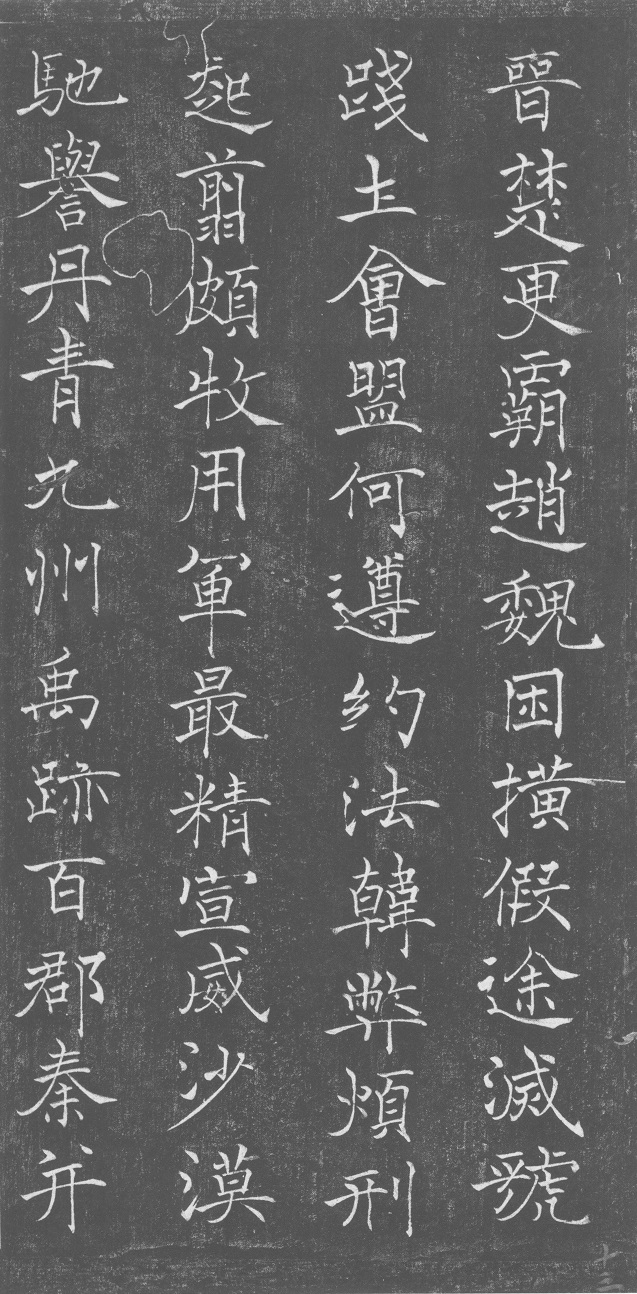 晉楚更霸趙魏困橫假途滅虢
踐土會盟何遵約法韓弊煩刑
起翦頗牧用軍最精宣威沙漠
馳譽丹青九州禹跡百郡秦并
十三